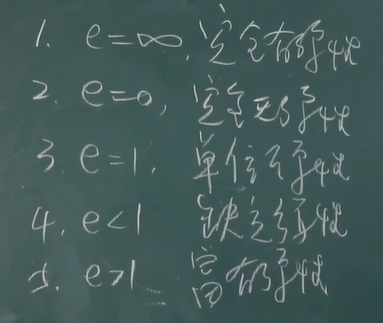 1. e=∞, 完全有弹性
2. e=0, 完全无弹性
3. e=1, 单位弹性
4. e<1 缺乏弹性
5. e>1 富有弹性